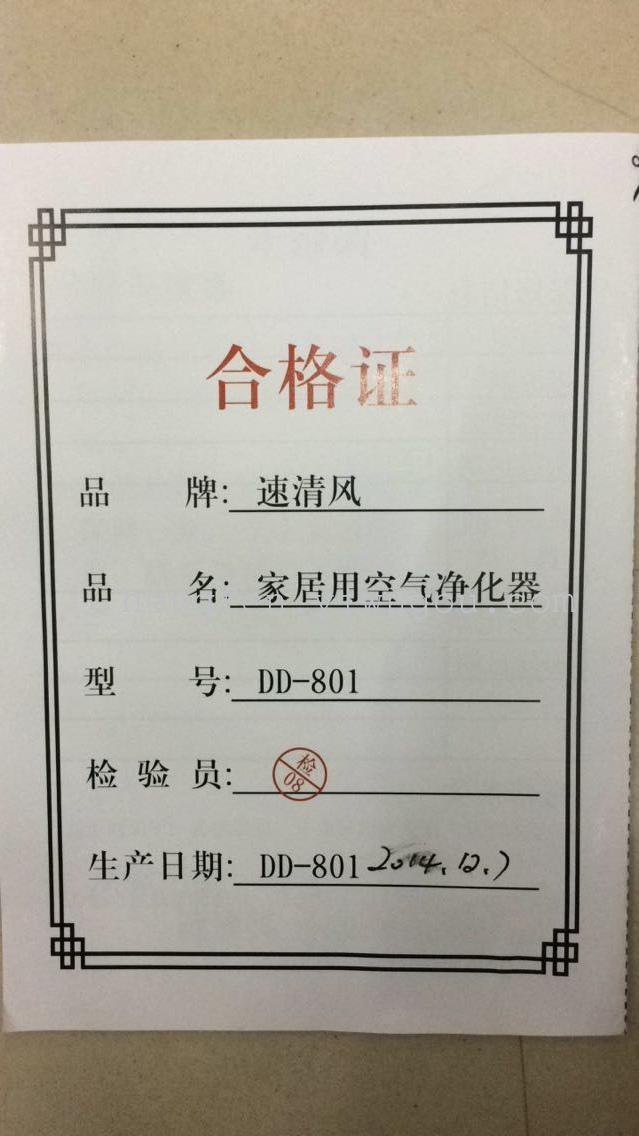 合格证
品 牌: 速清风
品 名: 家居用空气净化器
型 号: DD-801
检 验 员: 检 08
生产日期: DD-801 2014.12.7